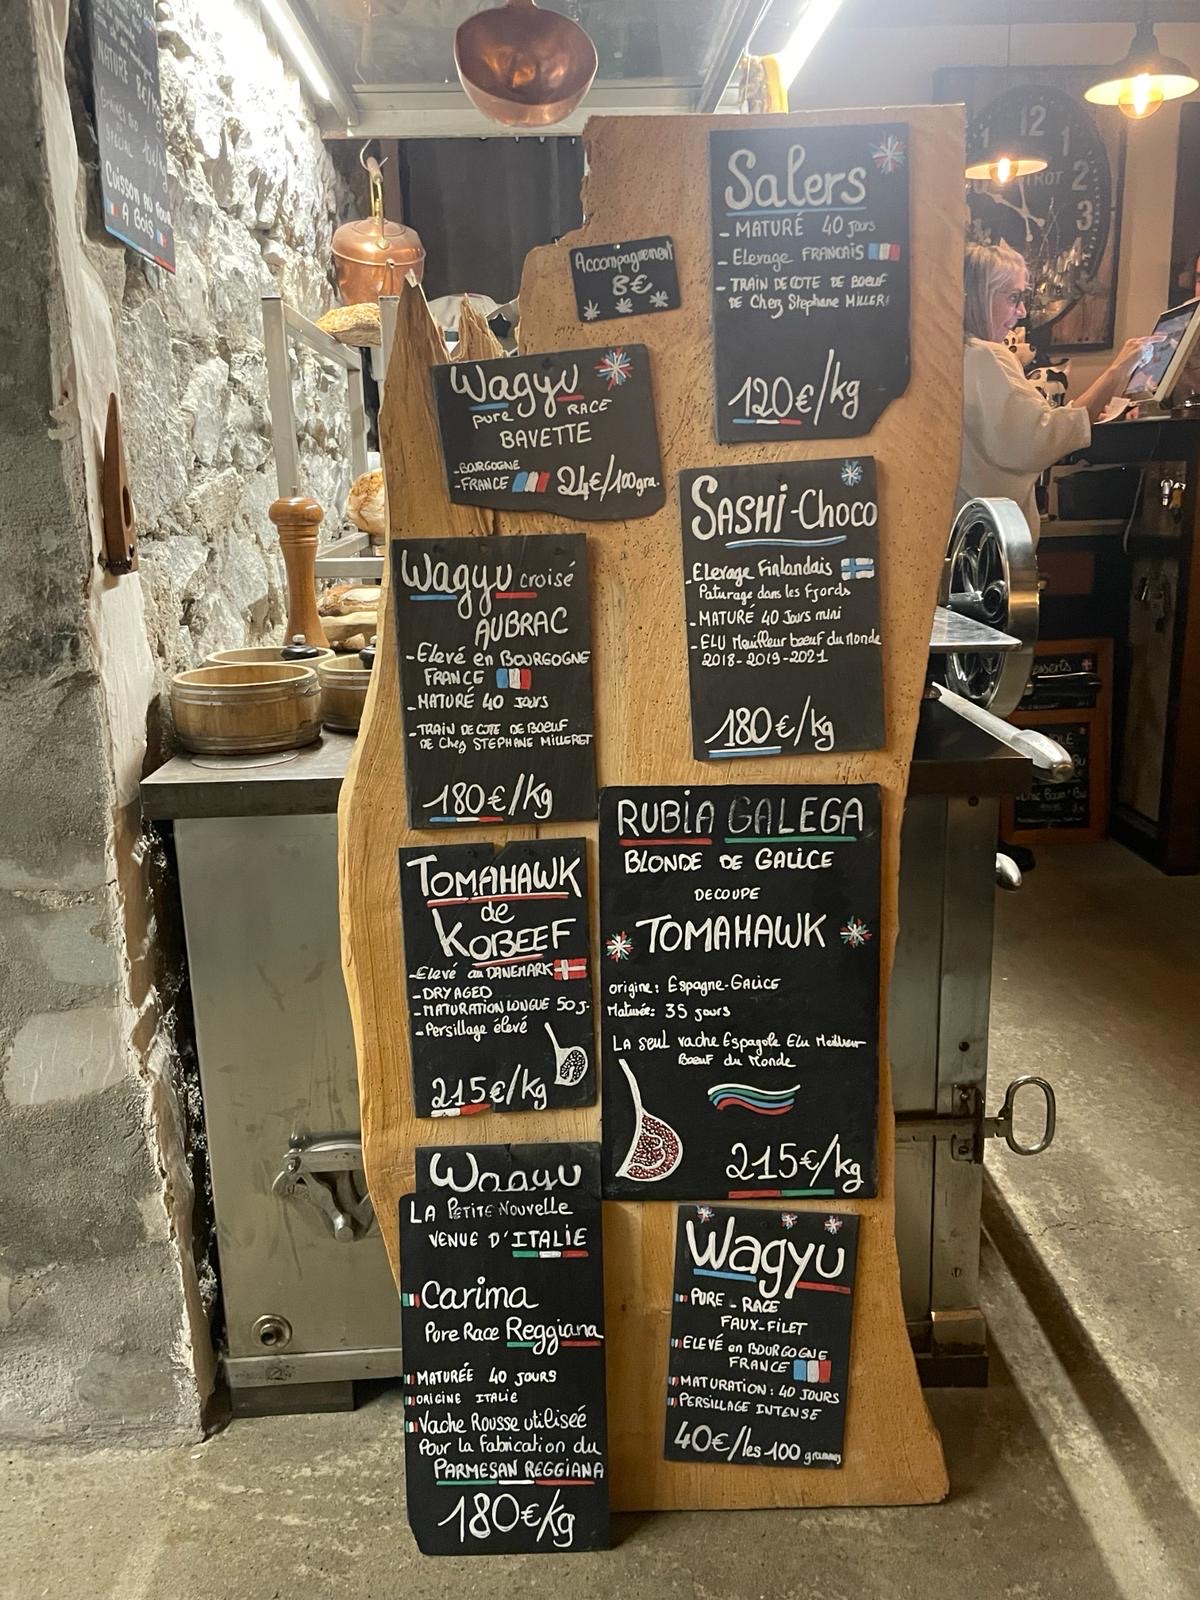 NATURE 8€/
SPÉCIAL
CUISSON AU FOUR
A BOIS
Accompagnement
8€
Salers
- MATURÉ 40 Jours
- Elevage FRANCAIS
- TRAIN DE COTE DE BOEUF
DE Chez Stephane MILLER
120€/kg
Wagyu
pure RACE
BAVETTE
- BOURGOGNE
- FRANCE 24€/100gra.
SASHI-Choco
- Elevage Finlandais
Paturage dans les Fjords
- MATURÉ 40 Jours mini
- ELU Meilleur bœuf du Monde
2018-2019-2021
180€/kg
Wagyu croisé
AUBRAC
- Elevé en BOURGOGNE
FRANCE
- MATURÉ 40 JOURS
- TRAIN DE COTE DE BOEUF
DE Chez STEPHANE MILLERET
180€/kg
RUBIA GALEGA
BLONDE DE GALICE
DECOUPE
TOMAHAWK
origine: Espagne-GALICE
Maturée: 35 jours
LA seul vache Espagole Elu Meilleur
Boeuf du Monde
215€/kg
TOMAHAWK
de
KOBEEF
- Elevé au DANEMARK
- DRY AGED
- MATURATION LONGUE 50 J.
- Persillage élevé
215€/kg
Wagyu
LA Petite Nouvelle
VENUE D'ITALIE
Carima
Pure Race Reggiana
MATURÉE 40 JOURS
ORIGINE ITALIE
Vache Rousse utilisée
Pour la fabrication du
PARMESAN REGGIANA
180€/kg
Wagyu
PURE - RACE
FAUX-FILET
ELEVÉ en BOURGOGNE
FRANCE
MATURATION: 40 JOURS
PERSILLAGE INTENSE
40€/les 100 grammes
12
1
2
3